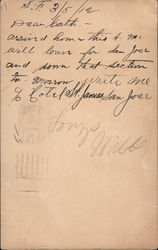 S.F. 3/5/12
Dear Cath -
arrived home this A.M.
will leave for San Jose
and down that section
to morrow write me
c/o Hotel St James San Jose
Will